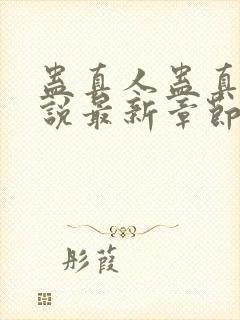 蛊真人蛊真
說最新章節
彤葭